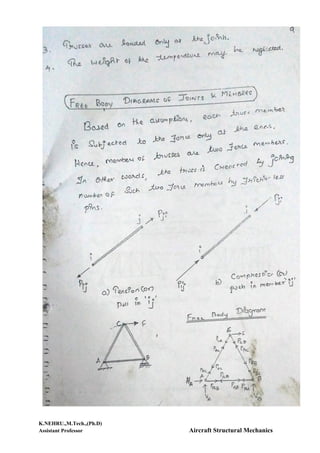 9
3. Trusses are loaded only at the joints.
4. The weight of the temperature may be neglected.
FREE BODY DIAGRAMS OF JOINTS & MEMBERS
Based on the assumption, each truss member
is subjected to the force only at the ends.
Hence, members of trusses are two force members.
In other words, the truss is
number of such two force members by friction less
pins.
Pij
j
i
Pij
Pij
j
i
Pij
a) Tension (or)
pull in 'ij'
b) Compression (or)
push in member 'ij'
Free Body Diagram
C
A
B
K.NEHRU.,M.Tech.,(Ph.D)
Assistant Professor
Aircraft Structural Mechanics